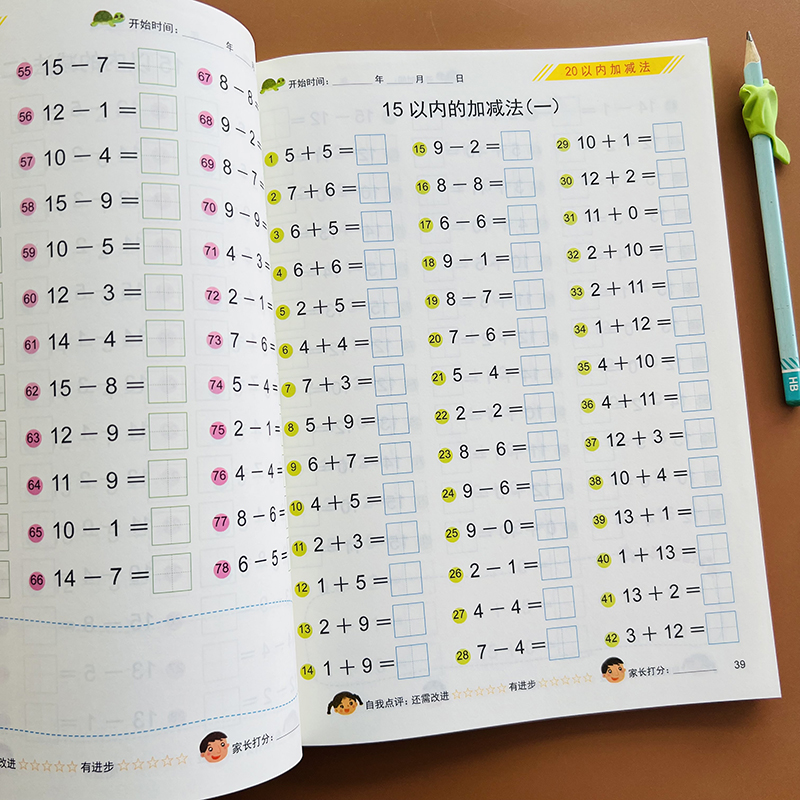 开始时间： 年
55 15－7＝
56 12－1＝
57 10－4＝
58 15－9＝
59 10－5＝
60 12－3＝
61 14－4＝
62 15－8＝
63 12－9＝
64 11－9＝
65 10－1＝
66 14－7＝
67 8－8＝
68 9－2＝
69 8－7＝
70 9－9＝
71 4－3＝
72 2－1＝
73 7－6＝
74 5－4＝
75 2－1＝
76 4－4＝
77 8－6＝
78 6－5＝
改进☆☆☆☆☆有进步☆☆☆☆☆
家长打分：
开始时间： 年 月 日
20以内加减法
15以内的加减法(一)
1 5＋5＝
2 7＋6＝
3 6＋5＝
4 6＋6＝
5 2＋5＝
6 4＋4＝
7 7＋3＝
8 5＋9＝
9 6＋7＝
10 4＋5＝
11 2＋3＝
12 1＋5＝
13 2＋9＝
14 1＋9＝
15 9－2＝
16 8－8＝
17 6－6＝
18 9－1＝
19 8－7＝
20 7－6＝
21 5－4＝
22 2－2＝
23 8－6＝
24 9－6＝
25 9－0＝
26 2－1＝
27 4－4＝
28 7－4＝
29 10＋1＝
30 12＋2＝
31 11＋0＝
32 2＋10＝
33 2＋11＝
34 1＋12＝
35 4＋10＝
36 4＋11＝
37 12＋3＝
38 10＋4＝
39 13＋1＝
40 1＋13＝
41 13＋2＝
42 3＋12＝
自我点评：还需改进☆☆☆☆☆有进步☆☆☆☆☆
家长打分：
39
HB